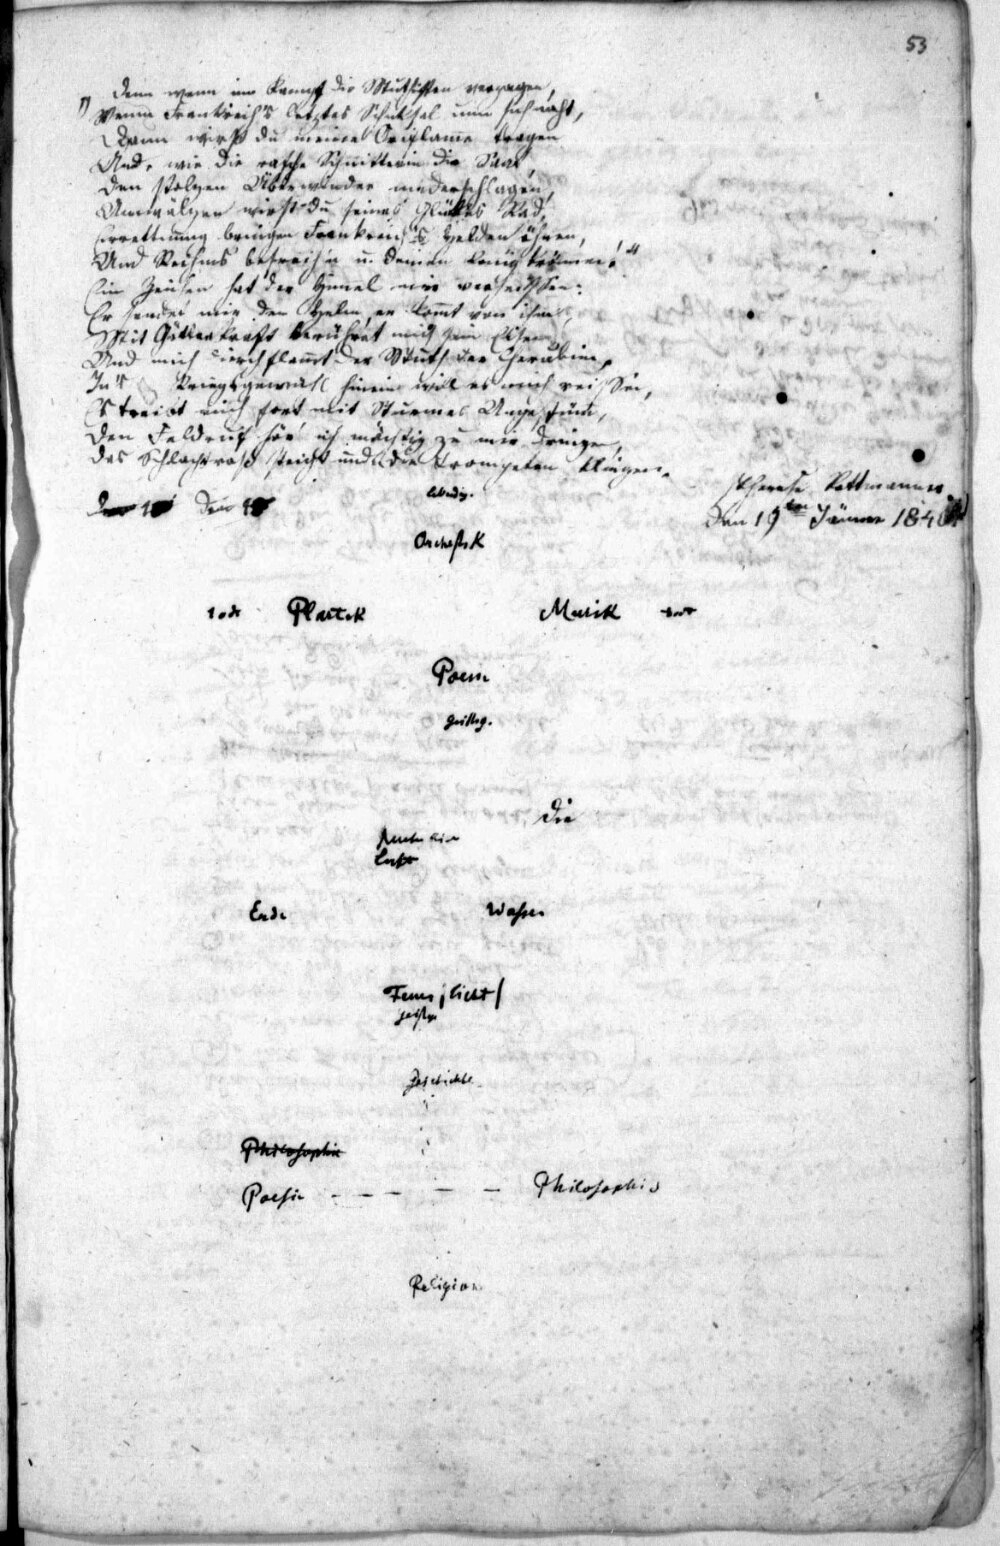 53
"Denn wenn im Kampf die Muthigsten verzagen,
Wenn Frankreich's letztes Schicksal nun sich naht,
Dann wirst du meine Oriflamme tragen
Und, wie die rasche Schnitterin die Saat,
Den stolzen Überwinder niederschlagen,
Umwälzen wirst du seines Glückes Rad,
Errettung bringen Frankreich's Heldensöhnen,
Und Rheims befrei'n u. deinen König krönen!"
Ein Zeichen hat der Himmel mir verheißen:
Er sendet mir den Helm, er kommt von ihm,
Mit Götterkraft berühret mich sein Eisen
Und mich durchflammt der Muth der Cherubim,
In's Kriegsgewühl hinein will es mich reißen,
Es treibt mich fort mit Sturmes Ungestüm,
Den Feldruf hör' ich mächtig zu mir dringen,
Das Schlachtroß steigt und die Trompeten klingen.
Therese Rottmanner.
Den 19ten Jänner 184
lebendig.
Orchestik
Plastik Musik
Poesie
geistig.
Die
Luft
Erde Wasser
Feuer /licht/
geistig
Geschichte
Philosophie
Poesie - - - - - Philosophie
Religion